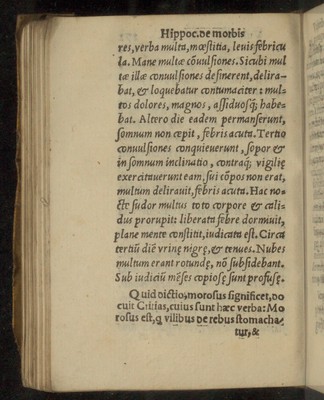 Hippoc. de morbis
res, verba multa, mœstitia, leuis febricu
la. Mane multæ cõuulsiones. Sicubi mul
tæ illæ conuulsiones desinerent, delira-
bat, & loquebatur contumaciter: mul-
tos dolores, magnos, assiduosq; habe-
bat. Altero die eadem permanserunt,
somnum non cœpit, febris acuta. Tertio
conuulsiones conquieuerunt, sopor &
in somnum inclinatio, contraq; vigiliæ
exercitauerunt eam, sui cõpos non erat,
multum delirauit, febris acuta. Hac no-
cte sudor multus toto corpore & cali-
dus prorupit: liberata febre dormiuit,
plane mente constitit, iudicata est. Circa
tertiũ diẽ vrinę nigrę, & tenues. Nubes
multum erant rotundę, nõ subsidebant.
Sub iudiciũ mẽses copiosę sunt profusę.
Quid dictio, morosus significet, do
cuit Critias, cuius sunt hæc verba: Mo
rosus est, q vilibus de rebus stomacha
tur, &